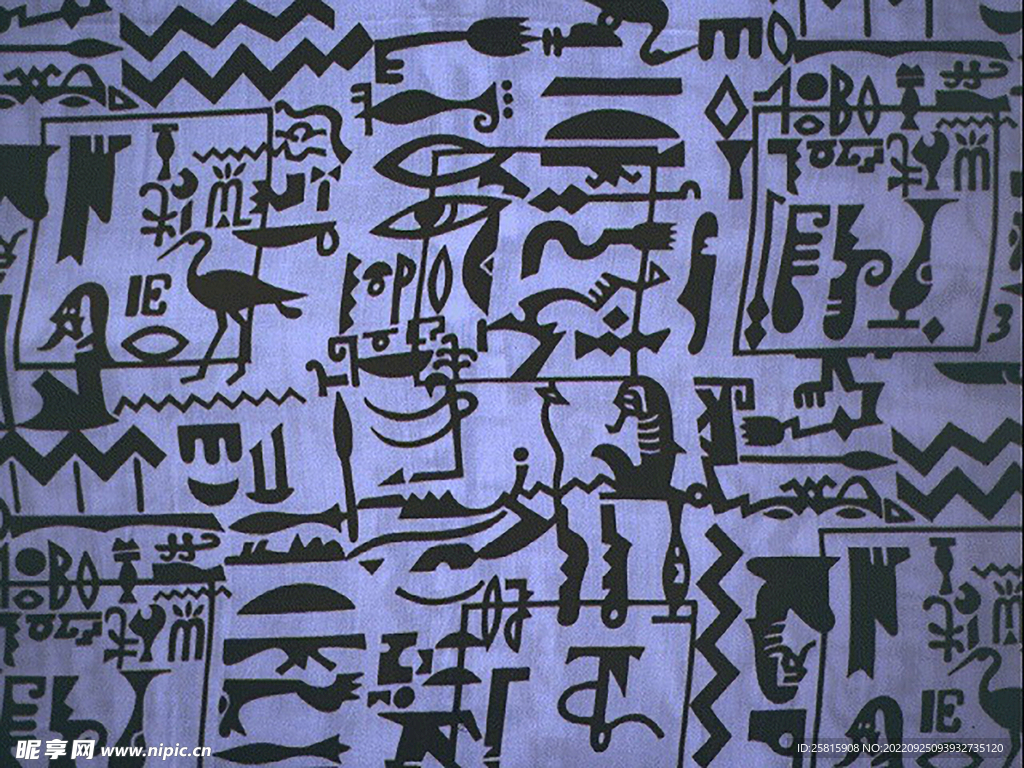 昵享网 www.nipic.cn
ID:25815908 NO:20220925093932735120